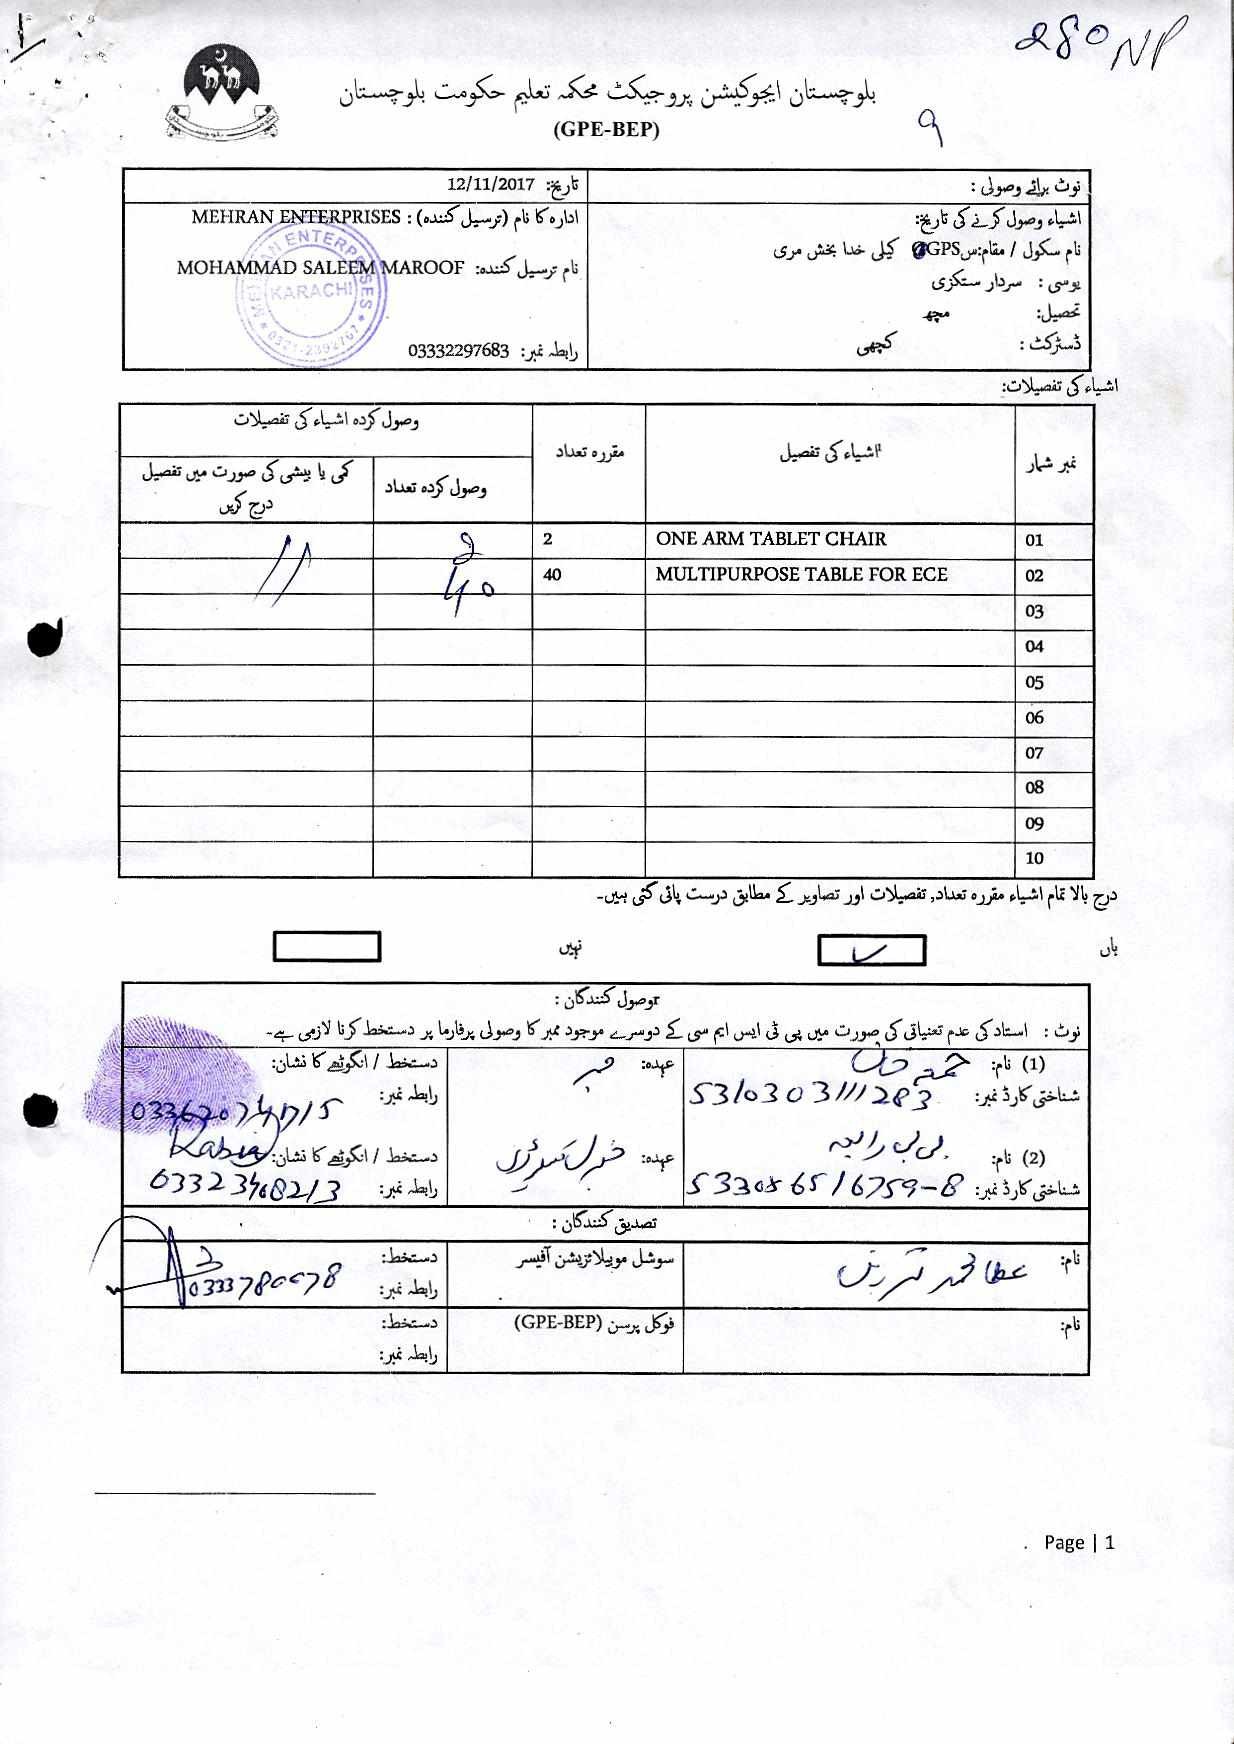 280 NP
بلوچستان ایجوکیشن پروجیکٹ محکمہ تعلیم حکومت بلوچستان
(GPE-BEP)
9
نوٹ برائے وصولی :
تاریخ: 12/11/2017
اشیاء وصول کرنے کی تاریخ:
ادارہ کا نام (ترسیل کنندہ) : MEHRAN ENTERPRISES
نام سکول / مقام: GPS کیلی خدا بخش مری
نام ترسیل کنندہ: MOHAMMAD SALEEM MAROOF
یوسی : سردار ستکزی
تحصیل: مچھ
ڈسٹرکٹ : کچھی
رابطہ نمبر: 03332297683
MEHRAN ENTERPRISES
KARACHI
0321-2392767
اشیاء کی تفصیلات:
نمبر شمار
اشیاء کی تفصیل
مقررہ تعداد
وصول کردہ اشیاء کی تفصیلات
وصول کردہ تعداد
کمی یا بیشی کی صورت میں تفصیل درج کریں
01 ONE ARM TABLET CHAIR 2 2
02 MULTIPURPOSE TABLE FOR ECE 40 40
03
04
05
06
07
08
09
10
درج بالا تمام اشیاء مقررہ تعداد, تفصیلات اور تصاویر کے مطابق درست پائی گئی ہیں۔
ہاں ✓ نہیں
وصول کنندگان :
نوٹ : استاد کی عدم تعیناتی کی صورت میں پی ٹی ایس ایم سی کے دوسرے موجود ممبر کا وصولی پرفارما پر دستخط کرنا لازمی ہے۔
(1) نام: عہدہ: ممبر دستخط / انگوٹھے کا نشان:
شناختی کارڈ نمبر: 5310303111283 رابطہ نمبر:
(2) نام: بی بی رابعہ عہدہ: جنرل سیکرٹری دستخط / انگوٹھے کا نشان: Rabia
شناختی کارڈ نمبر: رابطہ نمبر:
تصدیق کنندگان :
نام: عطا محمد سوشل موبیلائزیشن آفیسر دستخط:
رابطہ نمبر:
نام: فوکل پرسن (GPE-BEP) دستخط:
رابطہ نمبر:
Page | 1